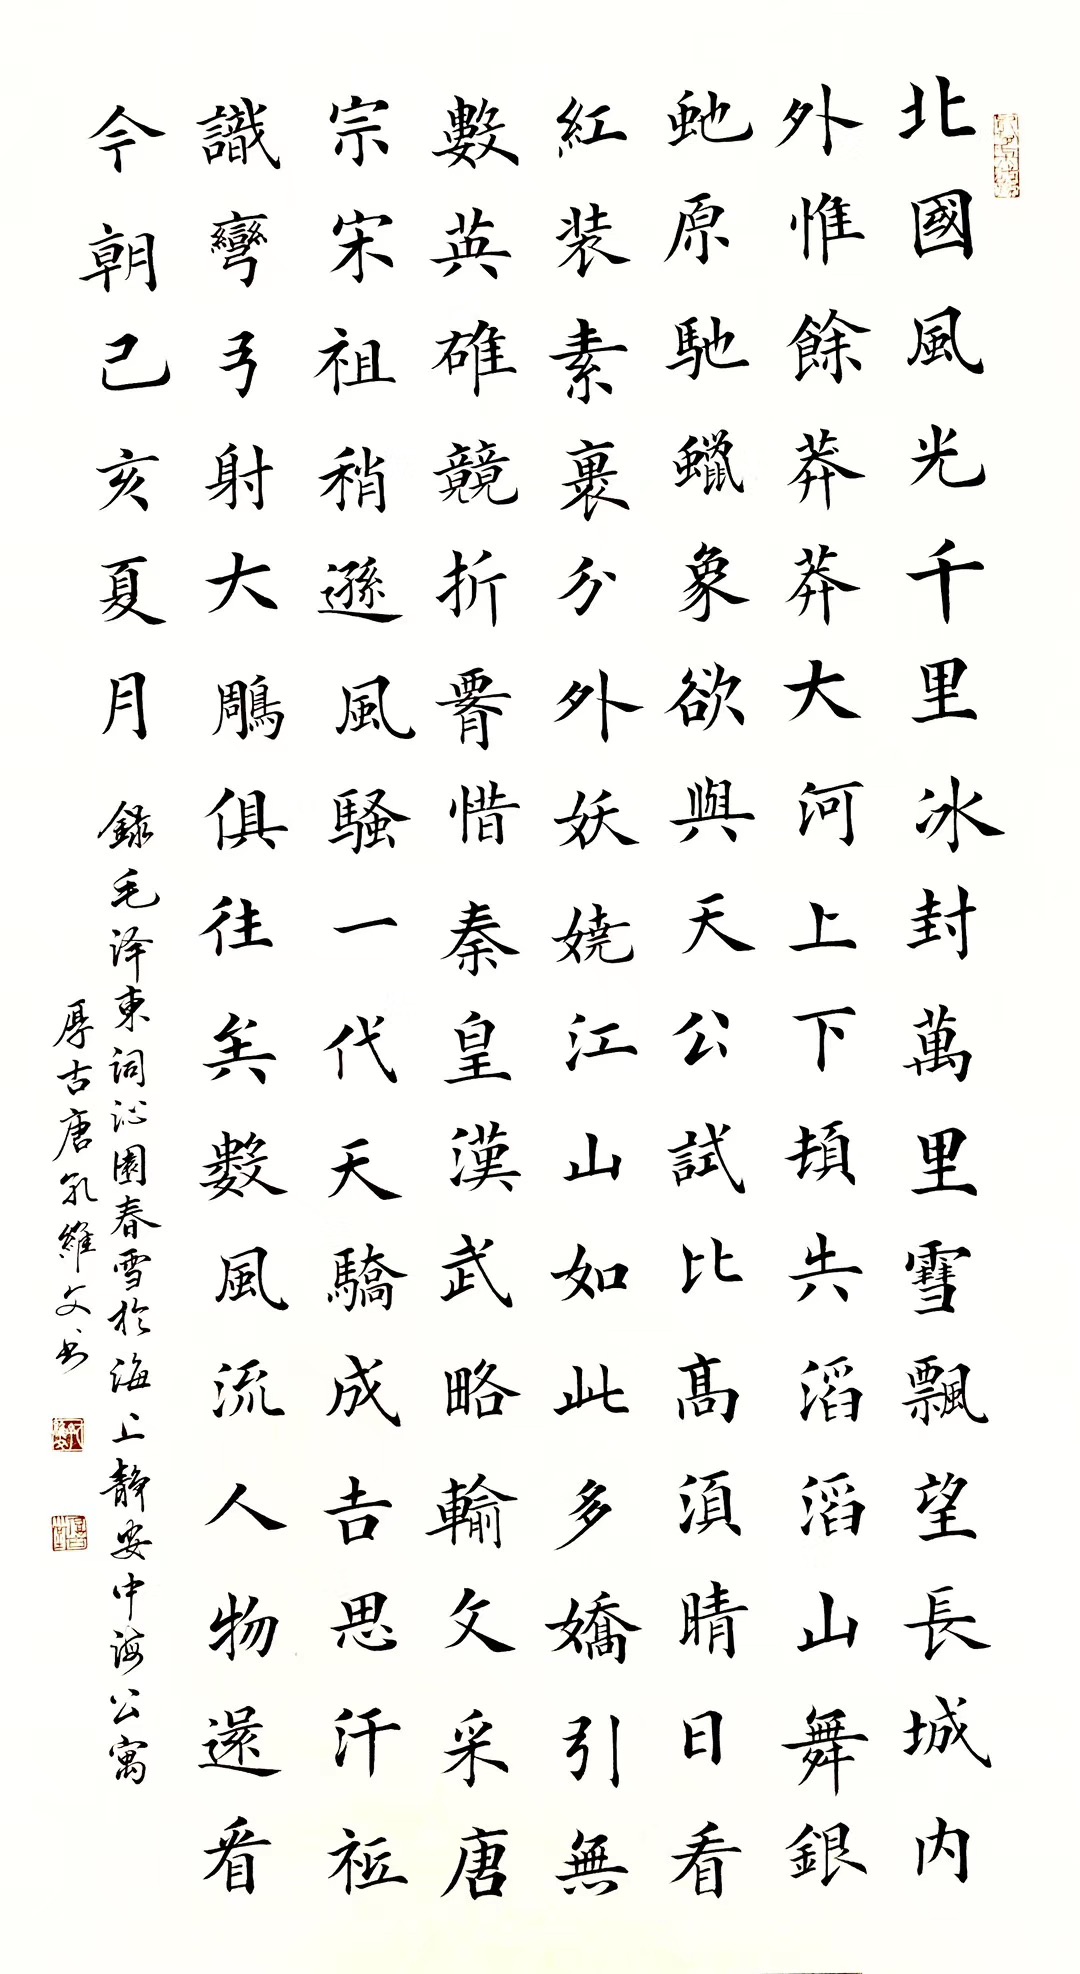 北國風光千里冰封萬里雪飄望長城内
外惟餘莽莽大河上下頓失滔滔山舞銀
虵原馳蠟象欲與天公試比髙須晴日看
紅装素裹分外妖嬈江山如此多嬌引無
數英雄競折腰惜秦皇漢武略輸文采唐
宗宋祖稍遜風騷一代天驕成吉思汗祗
識彎弓射大鵰俱往矣數風流人物還看
今朝己亥夏月 録毛泽東词沁園春雪於海上静安中海公寓
厚古唐孔維文书